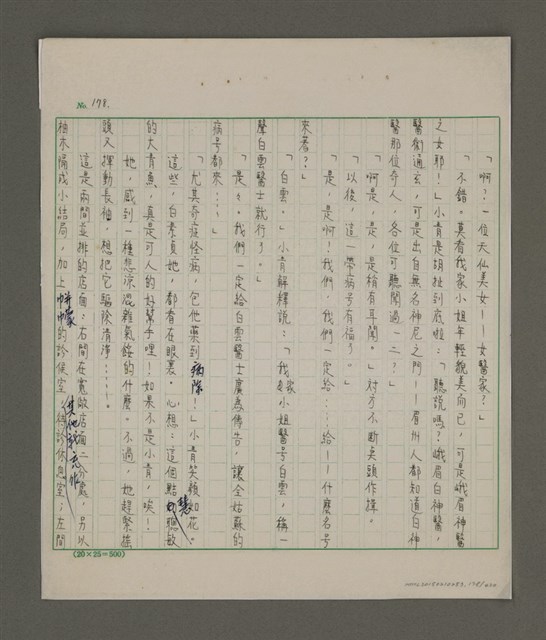 No. 178.
「啊？一位天仙美女——女醫家？」
「不錯。莫看我家小姐年輕貌美而已，可是峨眉神醫
之女耶！」小青是胡扯到底啦：「聽說嗎？峨眉白神醫，
醫術通玄，可是出自無名神尼之門——眉州人都知道白神
醫那位奇人，各位可聽聞過一二？」
「啊，是，是，是稍有耳聞。」對方不斷莫頭作揖。
「以後，這一帶病号有福了。」
「是，是啊！我們，我們一定給……給——什麼名号
來着？」
「白雲。」小青解釋說：「我家小姐醫号白雲，稱一
聲白雲醫士就行了。」
「是々。我們一定給白雲醫士廣為傳告，讓全姑蘇的
病号都來……」
「尤其奇症怪病，包他藥到病除！」小青笑顏如花。
這些，白素貞她，都看在眼裏。心想：這個點慧聰敏
的大青魚，真是可人的好幫手哩！如果不是小青，唉！
她，感到一種悲涼混雜氣餒的什麼。不過，她趕緊搖
頭又揮動長袖，想把它驅除清淨……。
這是兩間並排的店面：右間在寬敞店面二分處，另以
柚木隔成小結局，加上幃幪的診候室；其他就充作候診休息室；左間
(20×25=500)